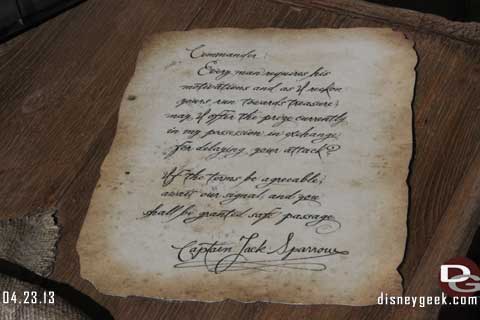 disneygeek.com
Commander:
Every man requires his
motivations and as I reckon
yours run towards treasure;
may I offer the prize currently
in my possession in exchange
for delaying your attack?
If the terms be agreeable;
await our signal, and you
shall be granted safe passage
Captain Jack Sparrow
04.23.13
DG
disneygeek.com